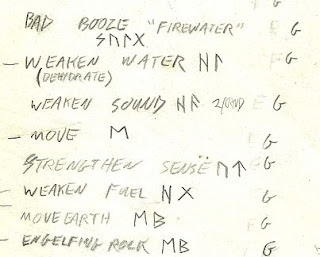 BAD BOOZE "FIREWATER" G
ᛊᚢᛚᚷ
- WEAKEN WATER ᚺᛚ G
(DEHYDRATE)
WEAKEN SOUND ᚺᚨ G
- MOVE ᛖ G
STRENGTHEN SENSE ᚢᛏ G
- WEAKEN FUEL ᚺᚷ G
- MOVE EARTH ᛖᛒ G
- ENGELFING ROCK ᛖᛒ G